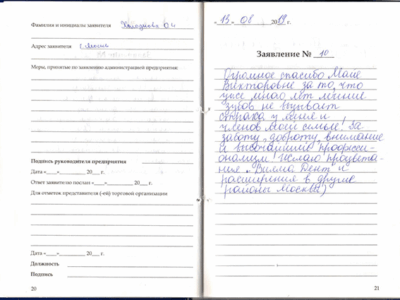 Фамилия и инициалы заявителя О.И.
Адрес заявителя г. Москва
Меры, принятые по заявлению администрацией предприятия:
Подпись руководителя предприятия
Дата «____» ________ 20___ г.
Ответ заявителю послан «____» ________ 20___ г.
Для отметок представителя (-ей) торговой организации
Дата «____» ________ 20___ г.
Должность
Подпись
20
«13» 08 2019 г.
Заявление № 10
Огромное спасибо Майе
Викторовне за то, что
уже много лет лечение
зубов не вызывает
страха у меня и
членов моей семьи! За
заботу, доброту, внимание
и высочайший професси-
онализм! Желаю процвета-
ния "Вилма Дент" и
расширения в другие
районы Москвы)
21